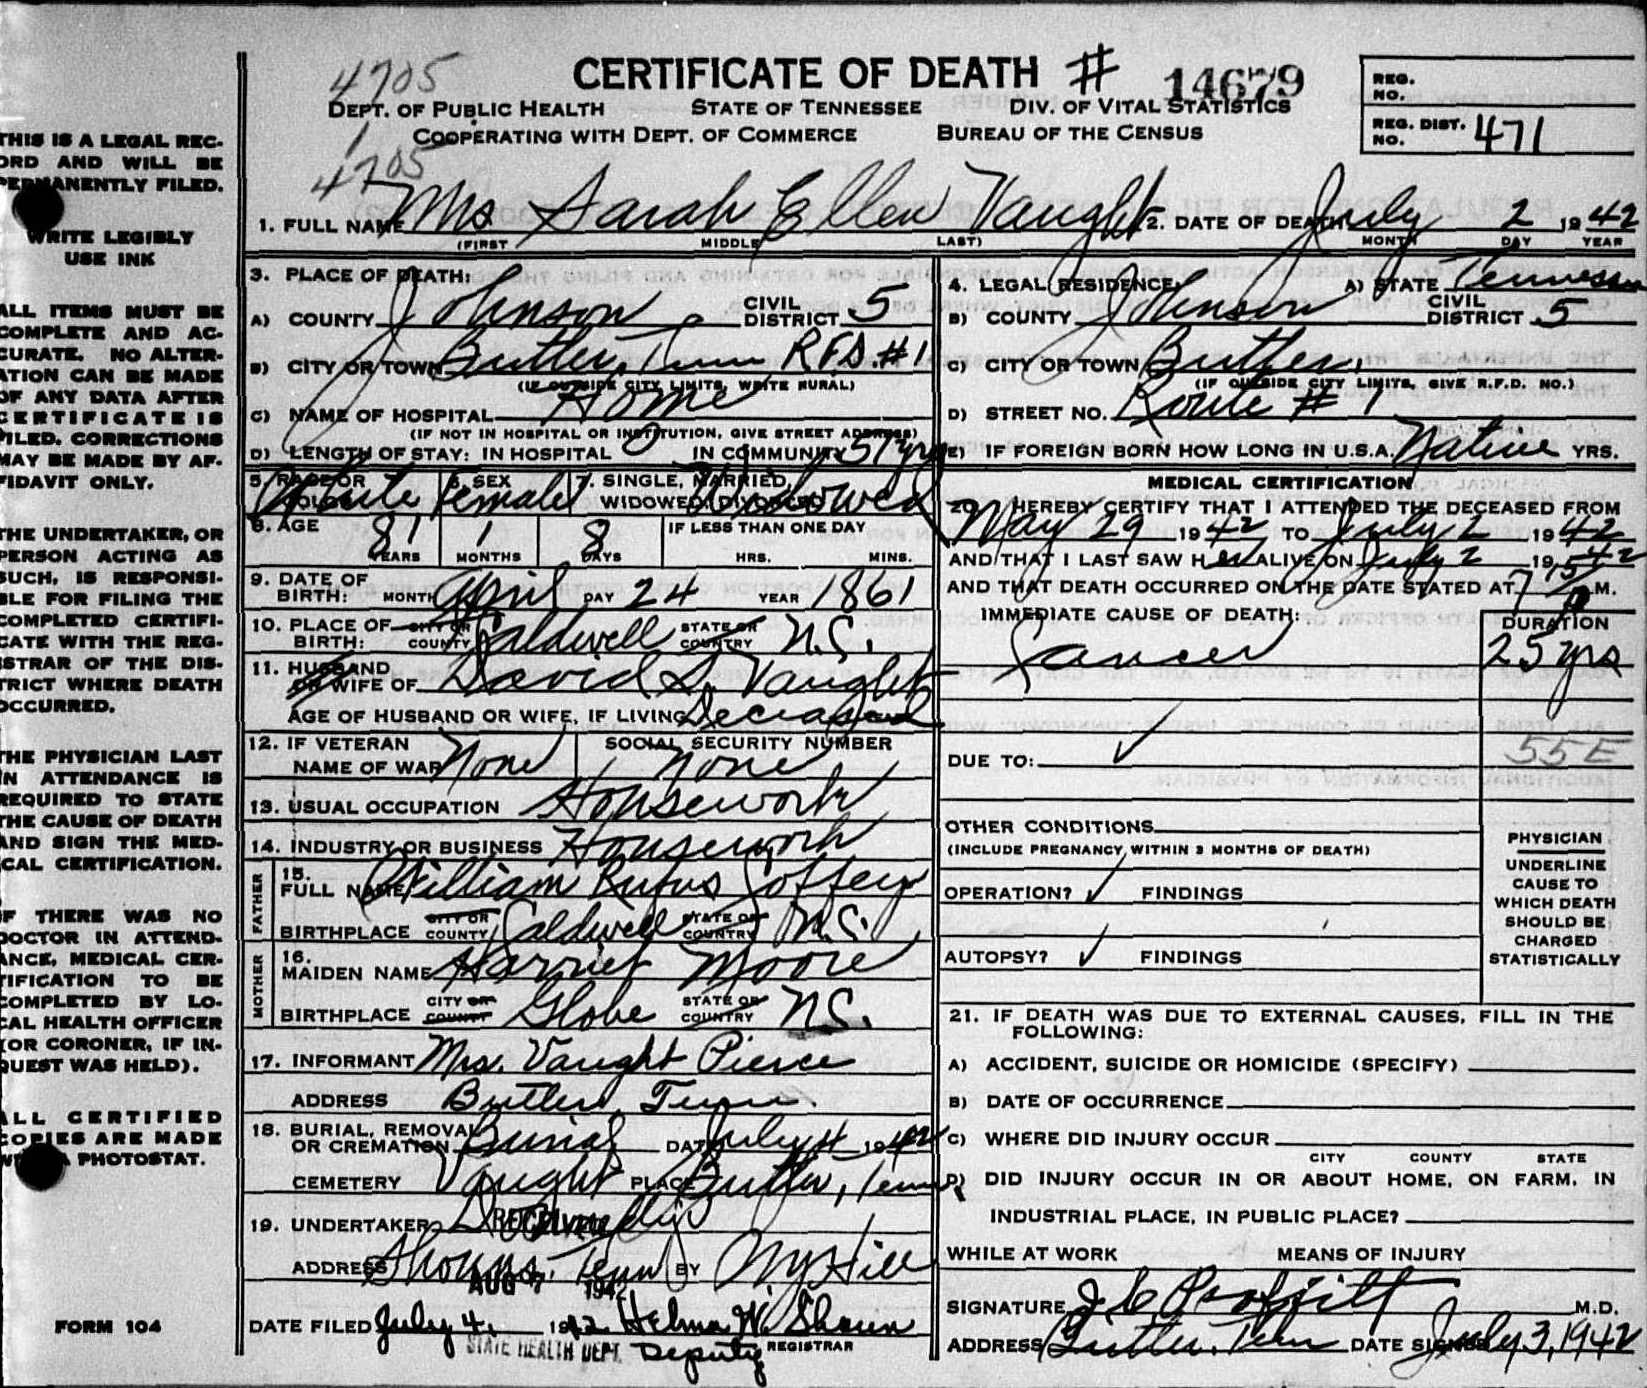 4705
CERTIFICATE OF DEATH # 14679
DEPT. OF PUBLIC HEALTH STATE OF TENNESSEE DIV. OF VITAL STATISTICS
COOPERATING WITH DEPT. OF COMMERCE BUREAU OF THE CENSUS
REG. NO.
REG. DIST. NO. 471
1
4705
THIS IS A LEGAL REC-
ORD AND WILL BE
PERMANENTLY FILED.
WRITE LEGIBLY
USE INK
ALL ITEMS MUST BE
COMPLETE AND AC-
CURATE. NO ALTER-
ATION CAN BE MADE
OF ANY DATA AFTER
CERTIFICATE IS
FILED. CORRECTIONS
MAY BE MADE BY AF-
FIDAVIT ONLY.
THE UNDERTAKER, OR
PERSON ACTING AS
SUCH, IS RESPONSI-
BLE FOR FILING THE
COMPLETED CERTIFI-
CATE WITH THE REG-
ISTRAR OF THE DIS-
TRICT WHERE DEATH
OCCURRED.
THE PHYSICIAN LAST
IN ATTENDANCE IS
REQUIRED TO STATE
THE CAUSE OF DEATH
AND SIGN THE MED-
ICAL CERTIFICATION.
IF THERE WAS NO
DOCTOR IN ATTEND-
ANCE, MEDICAL CER-
TIFICATION TO BE
COMPLETED BY LO-
CAL HEALTH OFFICER
(OR CORONER, IF IN-
QUEST WAS HELD).
ALL CERTIFIED
COPIES ARE MADE
PHOTOSTAT.
FORM 104
1. FULL NAME Mrs Sarah Ellen Vaught 2. DATE OF DEATH July 2 1942
(FIRST MIDDLE LAST) MONTH DAY YEAR
3. PLACE OF DEATH:
A) COUNTY Johnson CIVIL DISTRICT 5
B) CITY OR TOWN Butler, Tenn R.F.D. #1
(IF OUTSIDE CITY LIMITS, WRITE RURAL)
C) NAME OF HOSPITAL Home
(IF NOT IN HOSPITAL OR INSTITUTION, GIVE STREET ADDRESS)
D) LENGTH OF STAY: IN HOSPITAL 0 IN COMMUNITY 57 yrs
4. LEGAL RESIDENCE: A) STATE Tennessee
B) COUNTY Johnson CIVIL DISTRICT 5
C) CITY OR TOWN Butler,
(IF OUTSIDE CITY LIMITS, GIVE R.F.D. NO.)
D) STREET NO. Route #1
E) IF FOREIGN BORN HOW LONG IN U.S.A. Native YRS.
5. RACE OR COLOR White 6. SEX Female 7. SINGLE, MARRIED, WIDOWED, DIVORCED Widowed
8. AGE 81 YEARS 1 MONTHS 8 DAYS IF LESS THAN ONE DAY HRS. MINS.
9. DATE OF BIRTH: MONTH April DAY 24 YEAR 1861
10. PLACE OF BIRTH: CITY OR COUNTY Caldwell STATE OR COUNTRY N.C.
11. HUSBAND OR WIFE OF David S. Vaught
AGE OF HUSBAND OR WIFE, IF LIVING Deceased
12. IF VETERAN NAME OF WAR None SOCIAL SECURITY NUMBER None
13. USUAL OCCUPATION Housework
14. INDUSTRY OR BUSINESS Housework
FATHER
15. FULL NAME William Rufus Coffey
BIRTHPLACE CITY OR COUNTY Caldwell STATE OR COUNTRY N.C.
MOTHER
16. MAIDEN NAME Harriet Moore
BIRTHPLACE CITY OR COUNTY Globe STATE OR COUNTRY N.C.
17. INFORMANT Mrs. Vaught Pierce
ADDRESS Butler, Tenn.
18. BURIAL, REMOVAL OR CREMATION Burial DATE July 4 1942
CEMETERY Vaught PLACE Butler, Tenn
19. UNDERTAKER
RECEIVED
ADDRESS Shouns, Tenn BY Hill
AUG 7 1942
DATE FILED July 4, 1942 Helma W. Shoun
STATE HEALTH DEPT. Deputy REGISTRAR
MEDICAL CERTIFICATION
20. I HEREBY CERTIFY THAT I ATTENDED THE DECEASED FROM
May 29 1942 TO July 2 1942
AND THAT I LAST SAW HER ALIVE ON July 2 1942
AND THAT DEATH OCCURRED ON THE DATE STATED AT 7 15 M.
IMMEDIATE CAUSE OF DEATH: DURATION
Cancer 25 yrs
DUE TO: ✓ 55E
OTHER CONDITIONS
(INCLUDE PREGNANCY WITHIN 3 MONTHS OF DEATH)
OPERATION? ✓ FINDINGS
AUTOPSY? ✓ FINDINGS
PHYSICIAN
UNDERLINE
CAUSE TO
WHICH DEATH
SHOULD BE
CHARGED
STATISTICALLY
21. IF DEATH WAS DUE TO EXTERNAL CAUSES, FILL IN THE
FOLLOWING:
A) ACCIDENT, SUICIDE OR HOMICIDE (SPECIFY)
B) DATE OF OCCURRENCE
C) WHERE DID INJURY OCCUR
CITY COUNTY STATE
D) DID INJURY OCCUR IN OR ABOUT HOME, ON FARM, IN
INDUSTRIAL PLACE, IN PUBLIC PLACE?
WHILE AT WORK MEANS OF INJURY
SIGNATURE J C Proffitt M.D.
ADDRESS Butler, Tenn DATE SIGNED July 3, 1942